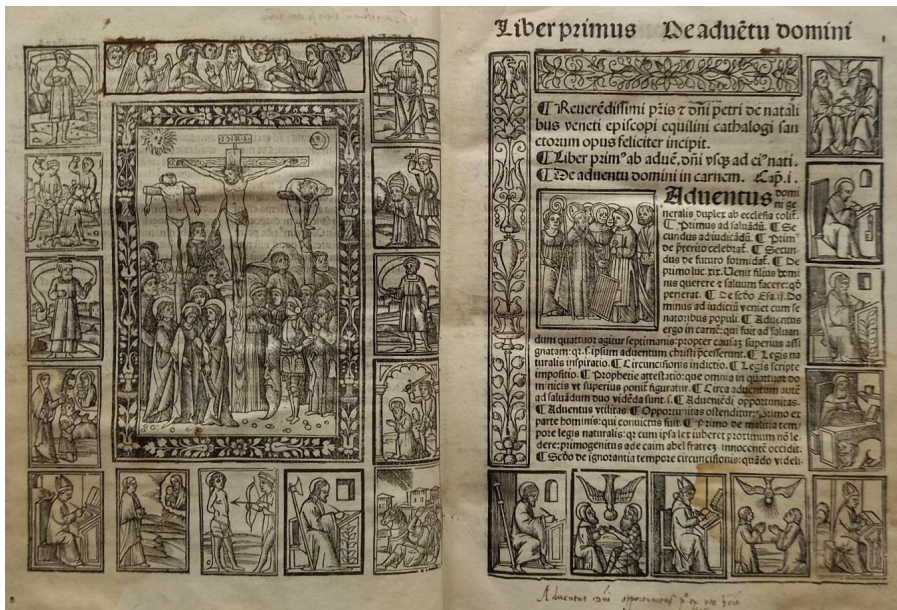 INRI
Liber primus De aduẽtu domini
¶ Reuerẽdissimi pr̃is ⁊ dñi petri de natali
bus veneti episcopi equilini cathalogi san
ctorum opus feliciter incipit.
¶ Liber prim⁹ ab aduẽ. dñi vsqꝫ ad ei⁹ nati.
¶ De aduentu domini in carnem. Cap̃. i.
Aduentus domi
ni ge
neralis duplex ab ecclesia colit̃.
¶ Primus ad saluãdũ. ¶ Se
cundus ad iudicãdũ. ¶ Prim⁹
de preterito celebrat̃. ¶ Secun
dus de futuro formidat̃. ¶ De
primo luc. xix. Uenit filius homi
nis querere ⁊ saluum facere: qď
perierat. ¶ De scďo Esa. ii. Do
minus ad iudiciũ veniet cum se
natoribus populi. ¶ Aduentus
ergo in carnẽ: qui fuit ad saluan
dum quattuor agitur septimanis: propter causas superius assi
gnatam: qr̃. s. ipsum aduentum christi p̃cesserunt. ¶ Legis na
turalis inspiratio. ¶ Circuncisionis indictio. ¶ Legis scripte
impositio. ¶ Prophetie attestatio: que omnia in quattuor do
minicis vt superius ponit̃ figuratur. ¶ Circa aduentum autẽ
ad saluãdum duo vidẽda sunt. s. ¶ Adueniẽdi opportunitas.
¶ Aduentus vtilitas. ¶ Opportunitas ostenditur: primo ex
parte hominis: qui conuictus fuit. ¶ Primo de malitia tem
pore legis naturalis: qr̃ cum ipsa lex iuberet proximum nõ le
dere: primogenitus ade caim abel fratrẽ innocentẽ occidit.
¶ Scďo de ignorantia tempore circuncisionis: quãdo videli-
Aduentus dñi opportunitas